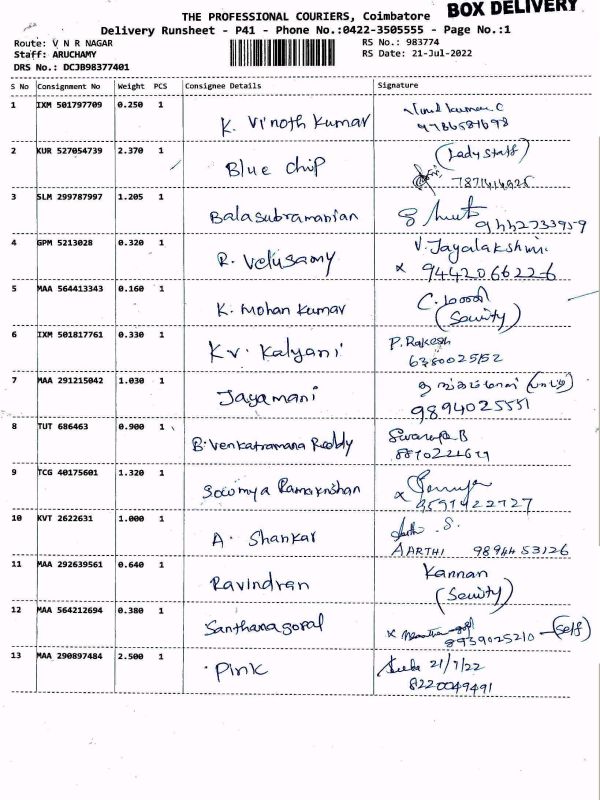 BOX DELIVERY
THE PROFESSIONAL COURIERS, Coimbatore
Delivery Runsheet - P41 - Phone No.:0422-3505555 - Page No.:1
Route: V N R NAGAR RS No.: 983774
Staff: ARUCHAMY RS Date: 21-Jul-2022
DRS No.: DCJB98377401
S No Consignment No Weight PCS Consignee Details Signature
1 IXM 501797709 0.250 1 K. Vinoth Kumar
2 KUR 527054739 2.370 1 Blue Chip (Lady Staff)
3 SLM 299787997 1.205 1 Balasubramanian
4 GPM 5213028 0.320 1 R. Velusamy V. Jayalakshmi
x 9442066226
5 MAA 564413343 0.160 1 K. Mohan Kumar
6 IXM 501817761 0.330 1 Kv. Kalyani P. Rakesh
6380025152
7 MAA 291215042 1.030 1 Jayamani
9894025551
8 TUT 686463 0.900 1 B. Venkatramana Reddy
9 TCG 40175601 1.320 1 Sowmya Ramakrishan
10 KVT 2622631 1.000 1 A. Shankar
AARTHI 9894453126
11 MAA 292639561 0.640 1 Ravindran Kannan
12 MAA 564212694 0.380 1 Santhanagopal
8939025210 - (Self)
13 MAA 290897484 2.500 1 Pink 21/7/22
8220049491